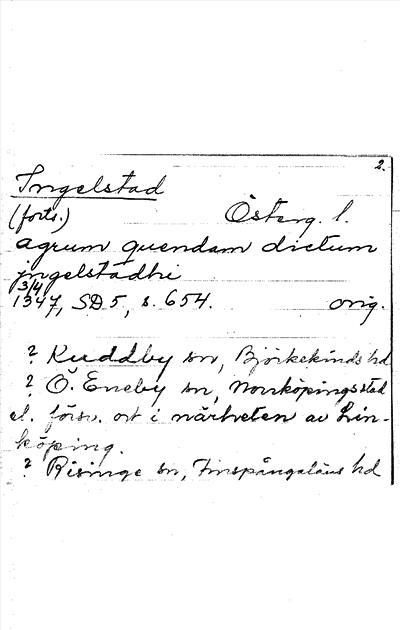 2.
Ingelstad
(forts.) Österg. l.
agrum quendam dictum
jngelstadhi
3/4
1347, SD 5, s. 654. orig.
? Kuddby sn, Björkekinds hd
? Ö. Eneby sn, Norrköpings stad
el. försv. ort i närheten av Lin-
köping.
? Risinge sn, Finspångaläns hd